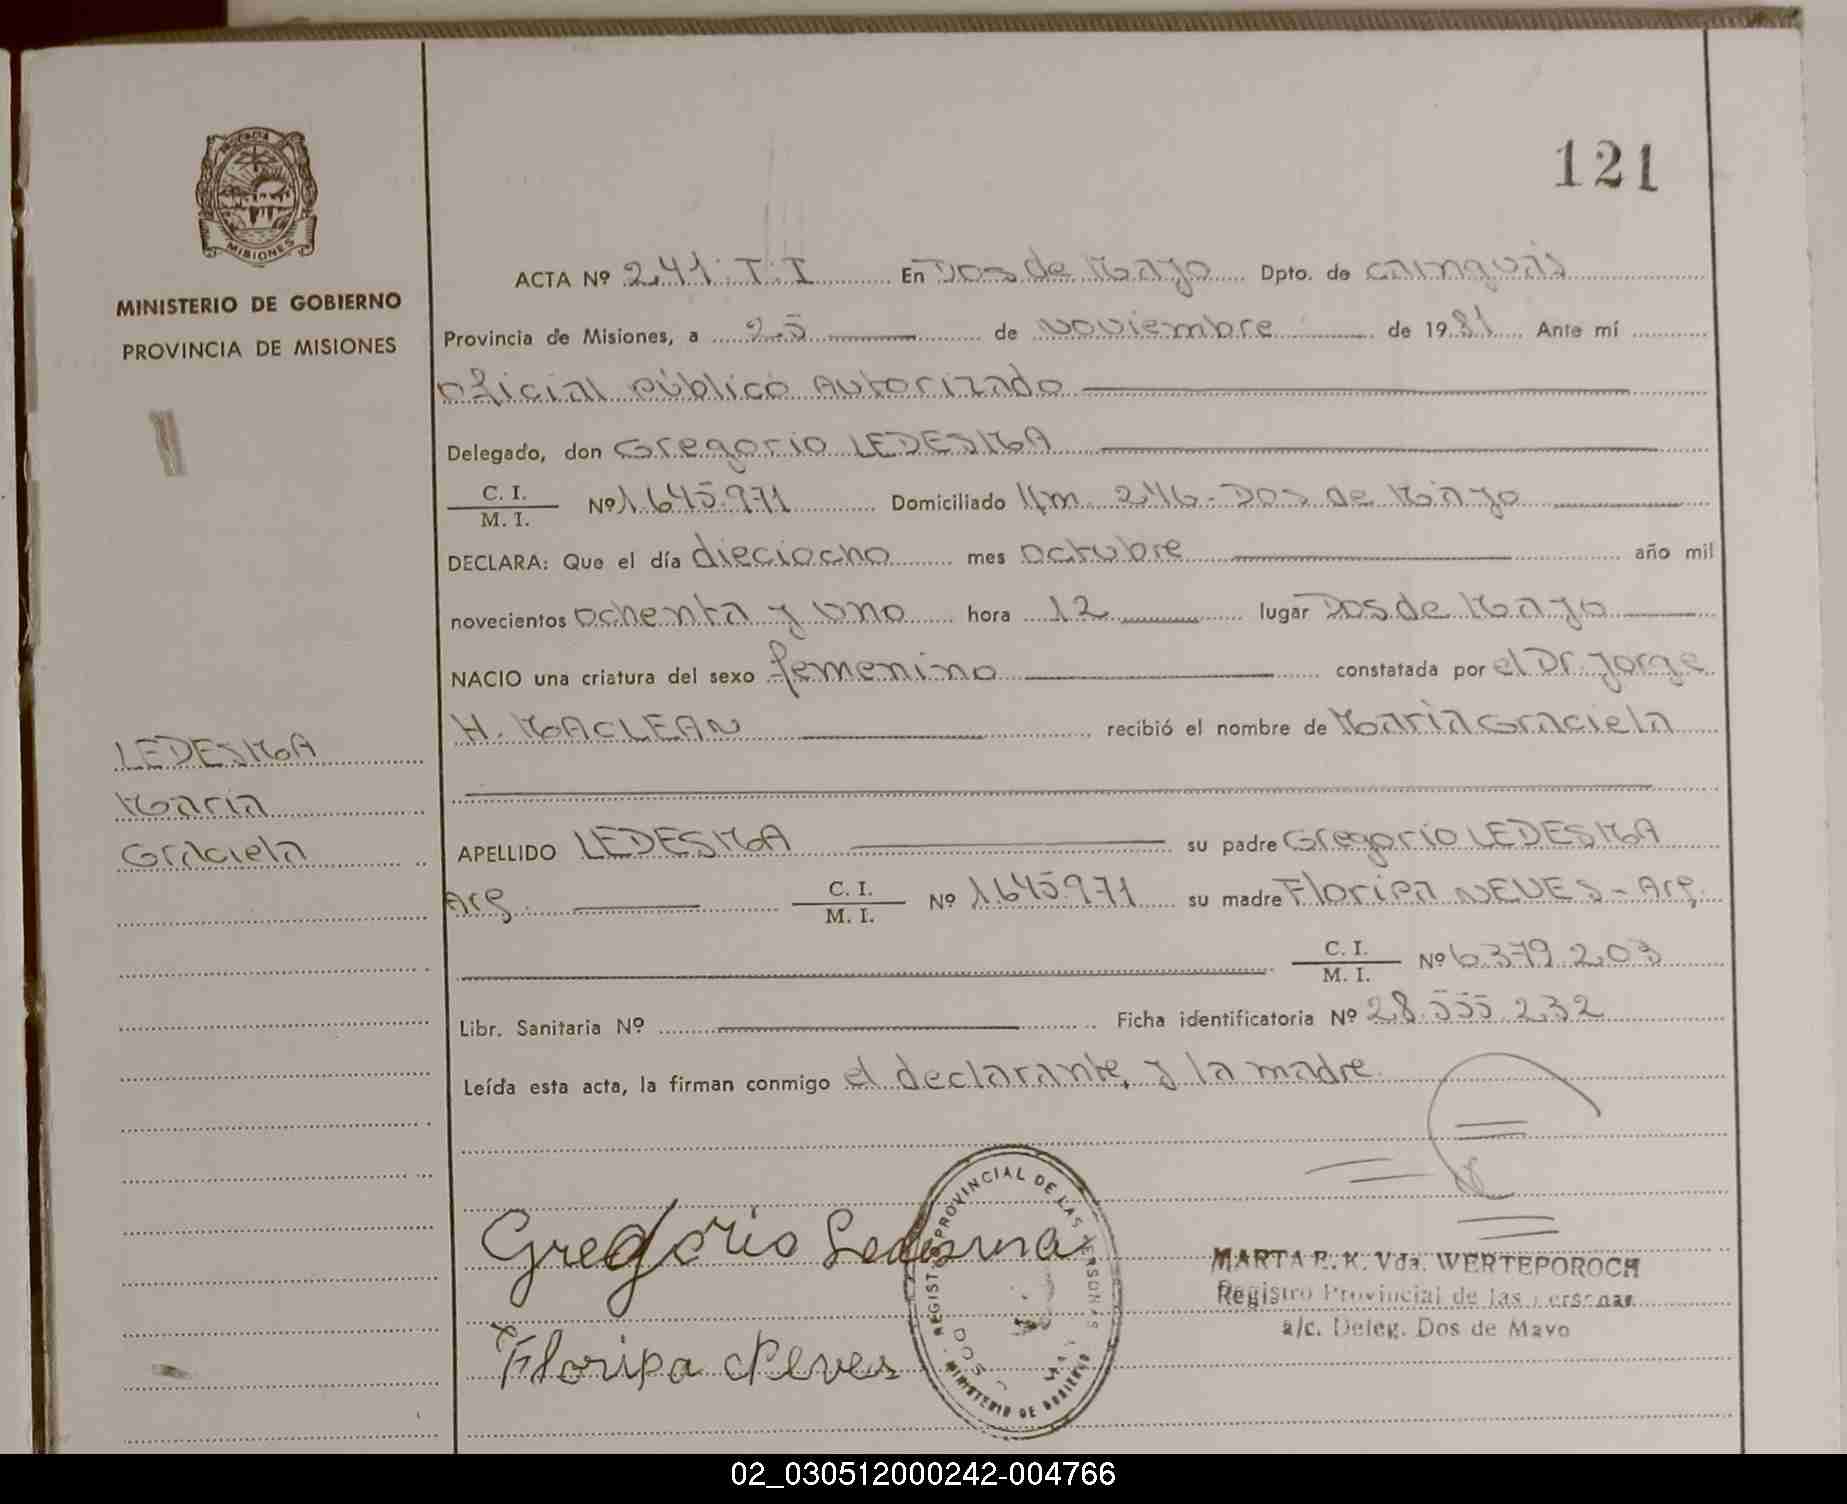 121
PROVINCIA
MISIONES
MINISTERIO DE GOBIERNO
PROVINCIA DE MISIONES
ACTA Nº 241. T. I En Dos de Mayo Dpto. de Cainguás
Provincia de Misiones, a 25 de Noviembre de 1981 Ante mí
Oficial Público Autorizado
Delegado, don Gregorio LEDESMA
C. I. / M. I. Nº 1.645.971 Domiciliado Km. 246 - Dos de Mayo
DECLARA: Que el día dieciocho mes octubre año mil
novecientos ochenta y uno hora 12 lugar Dos de Mayo
NACIO una criatura del sexo femenino constatada por el Dr. Jorge
H. MACLEAN recibió el nombre de María Graciela
LEDESMA
María
Graciela
APELLIDO LEDESMA su padre Gregorio LEDESMA
Arg. C. I. / M. I. Nº 1.645.971 su madre Floripa NEVES - Arg.
C. I. / M. I. Nº 6.379.203
Libr. Sanitaria Nº Ficha identificatoria Nº 28.555.232
Leída esta acta, la firman conmigo el declarante, y la madre
Gregorio Ledesma
Floripa Neves
REGISTRO PROVINCIAL DE LAS PERSONAS
MINISTERIO DE GOBIERNO
MARTA E. K. Vda. WERTEPOROCH
Registro Provincial de las Personas
a/c. Deleg. Dos de Mayo
02_030512000242-004766